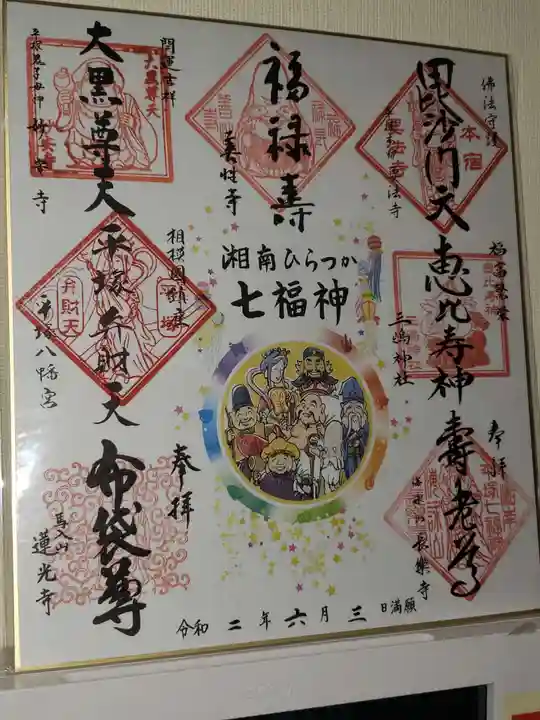 佛法守護
本宿
毘沙門天
要法寺
福禄寿
善性寺
開運吉祥
大黒尊天
大黒尊天
平塚鬼子母神 妙安寺
恵比寿神
三嶋神社
湘南ひらつか
七福神
相模國鎮座
平塚弁財天
弁財天
平塚
平塚八幡宮
奉拝
壽老尊
平塚七福神
長樂寺
奉拝
布袋尊
馬入山
蓮光寺
令和二年六月三日満願